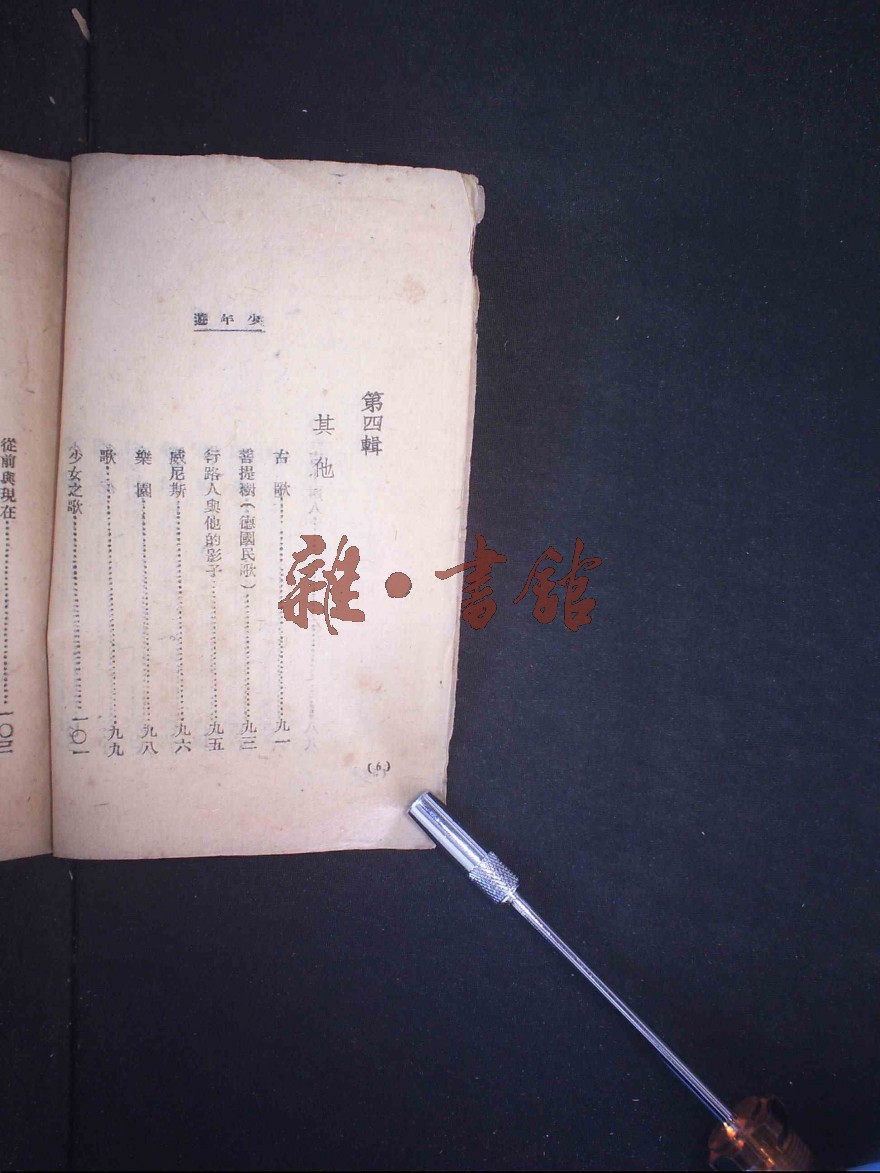 少年遊
第四輯
其他
古歌……九一
菩提樹(德國民歌)……九三
行路人與他的影子……九五
威尼斯……九六
樂園……九八
歌……九九
少女之歌……一〇一
(6)
從前與現在……一〇三
雜·書館